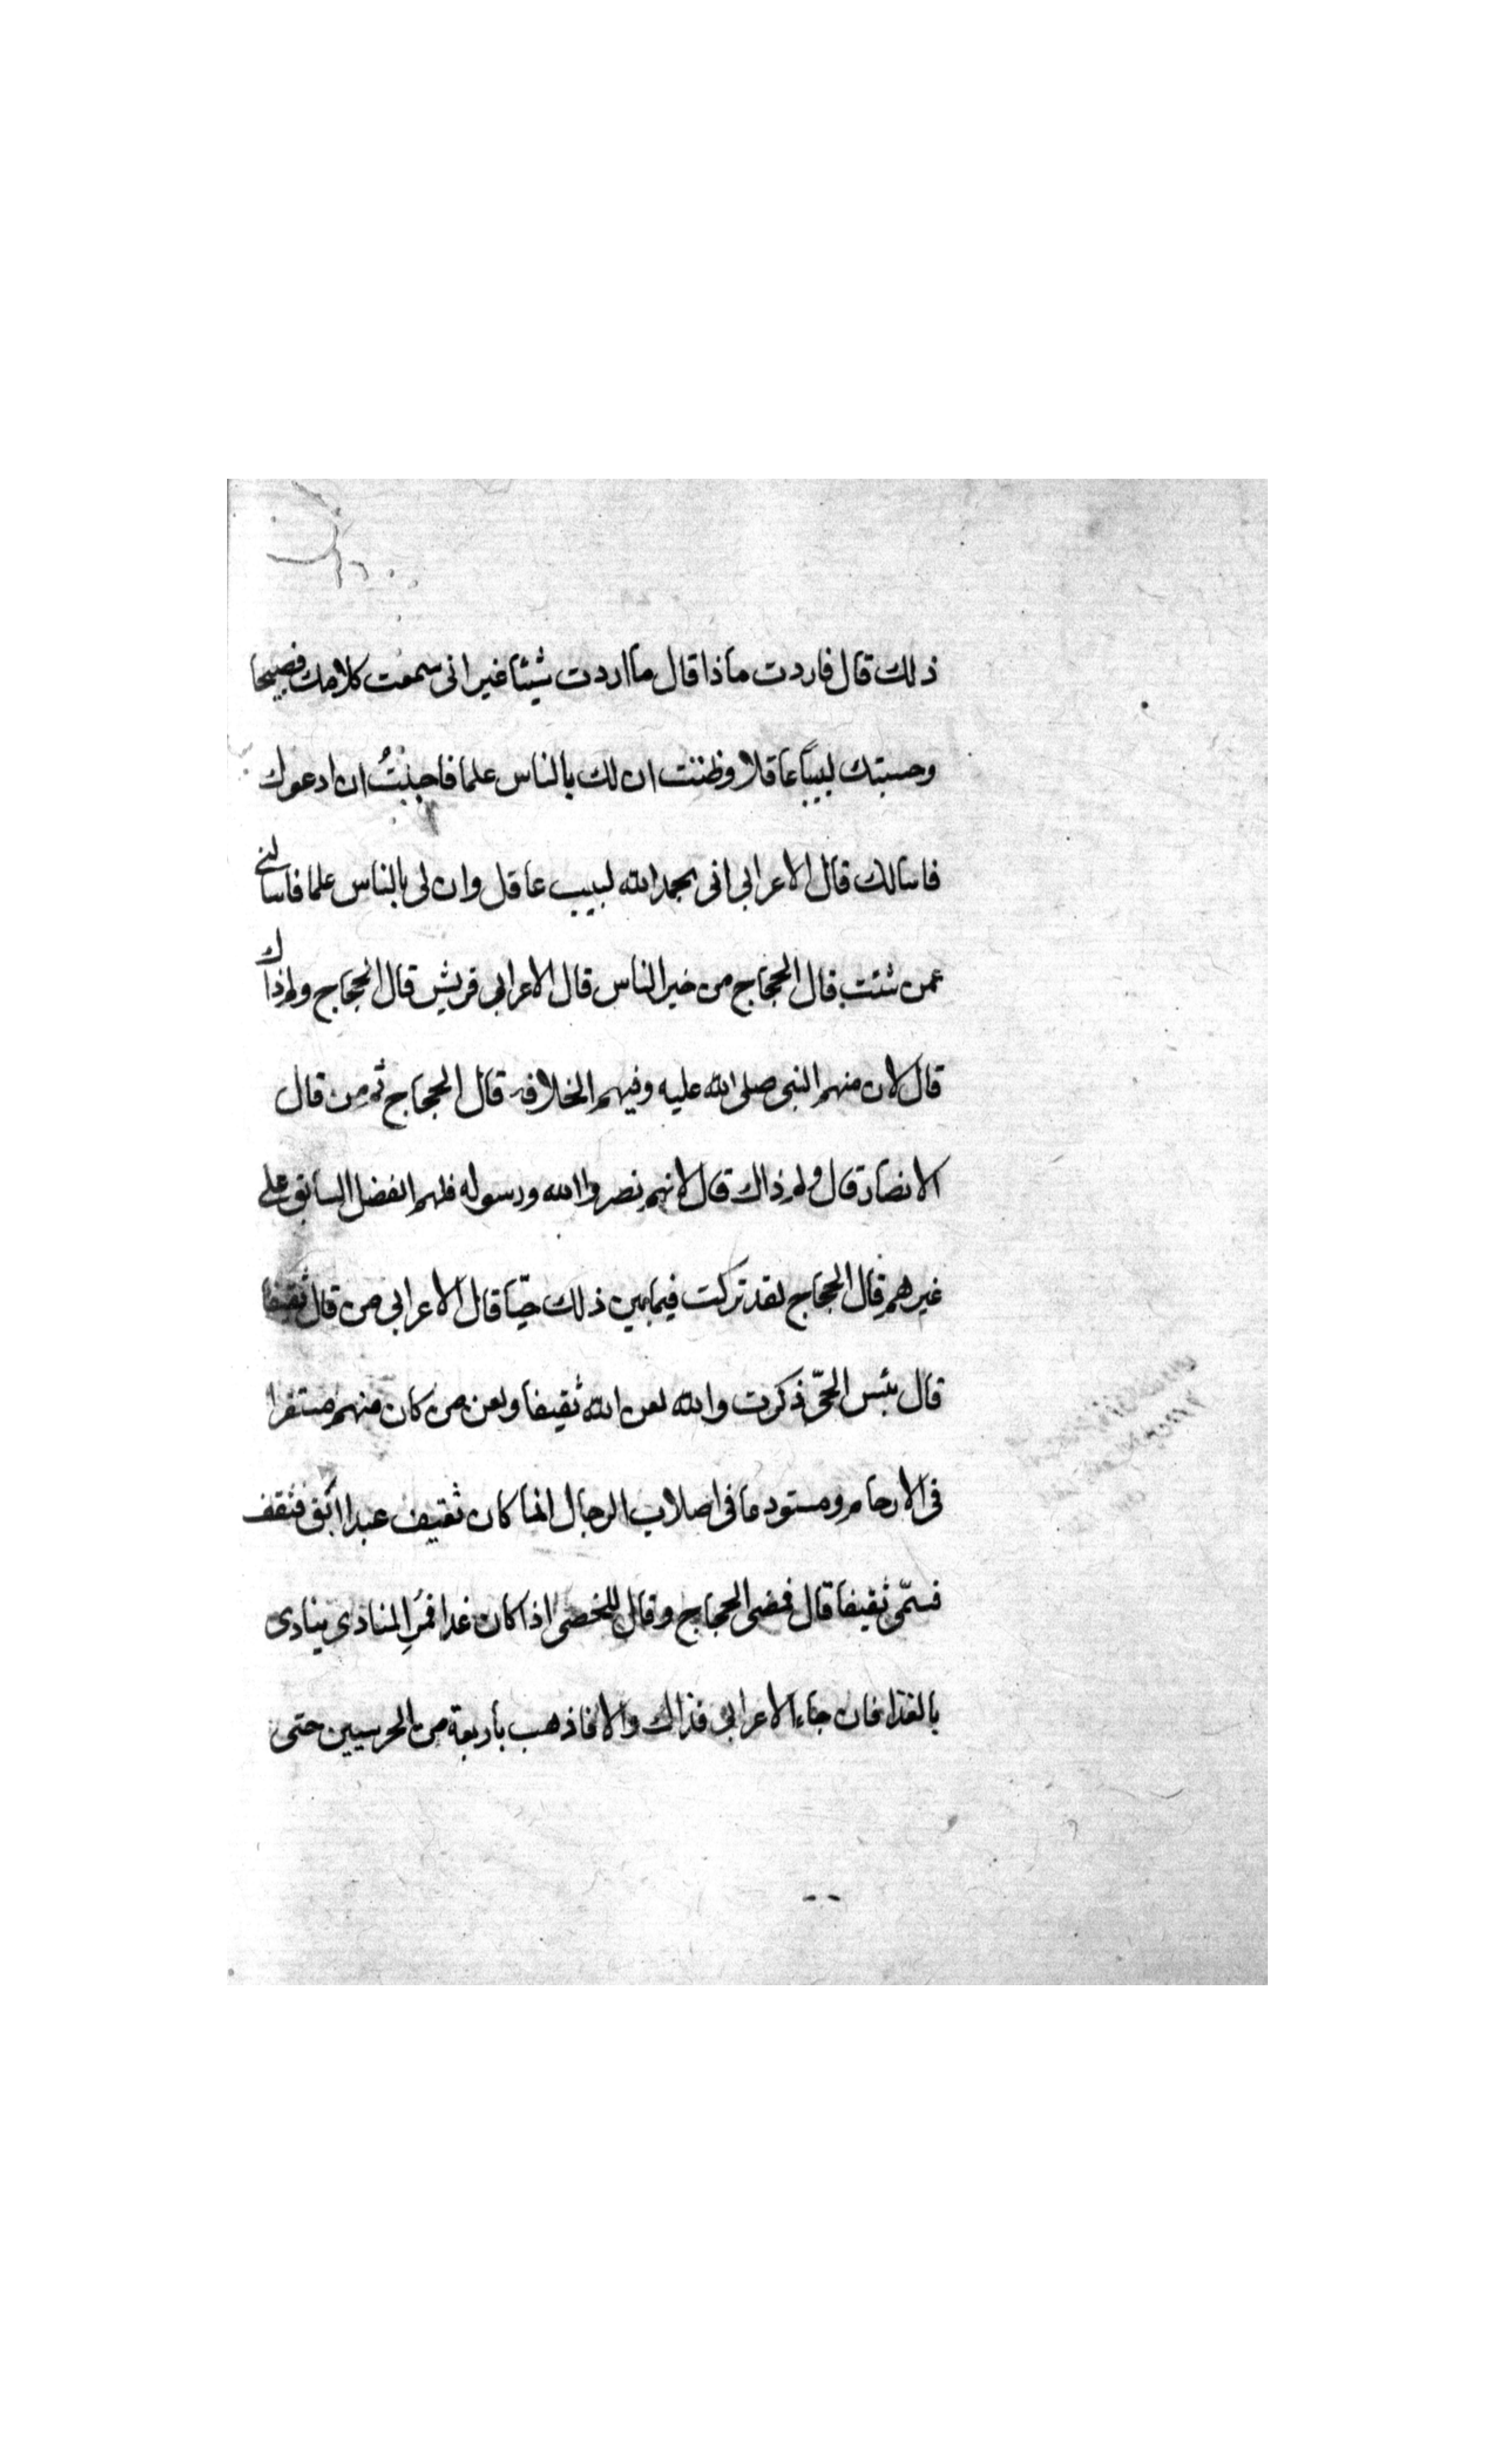 ذلك قال فاردت ماذا قال ما اردت شيئا غير انى سمعت كلامك فصيحا
وحسبتك لبيبا عاقلا وظننت ان لك بالناس علما فاحببتُ ان ادعوك
فاسالك قال الاعرابى انى بحمد الله لبيب عاقل وان لى بالناس علما فاسالنے
عمن شئت قال الحجاج من خير الناس قال الاعرابى قريش قال الحجاج ولم ذاك
قال لان منهم النبى صلى الله عليه وفيهم الخلافة قال الحجاج ثم من قال
الانصار قال ولم ذاك قال لانهم نصروا الله ورسوله فلهم الفضل السابق على
غيرهم قال الحجاج لقد تركت فيما بين ذلك حيّا قال الاعرابى من قال ثقيفا
قال بئس الحىّ ذكرت والله لعن الله ثقيفا ولعن من كان منهم مستقرا
فى الارحام ومستودعا فى اصلاب الرجال انما كان ثقيف عبدا ابق فثقف
فسمّى ثقيفا قال فمضى الحجاج وقال للخصى اذا كان غدا فمُرِ المنادى ينادى
بالغذاء فان جاء الاعرابى فذاك والا فاذهب باربعة من الحرسيين حتى